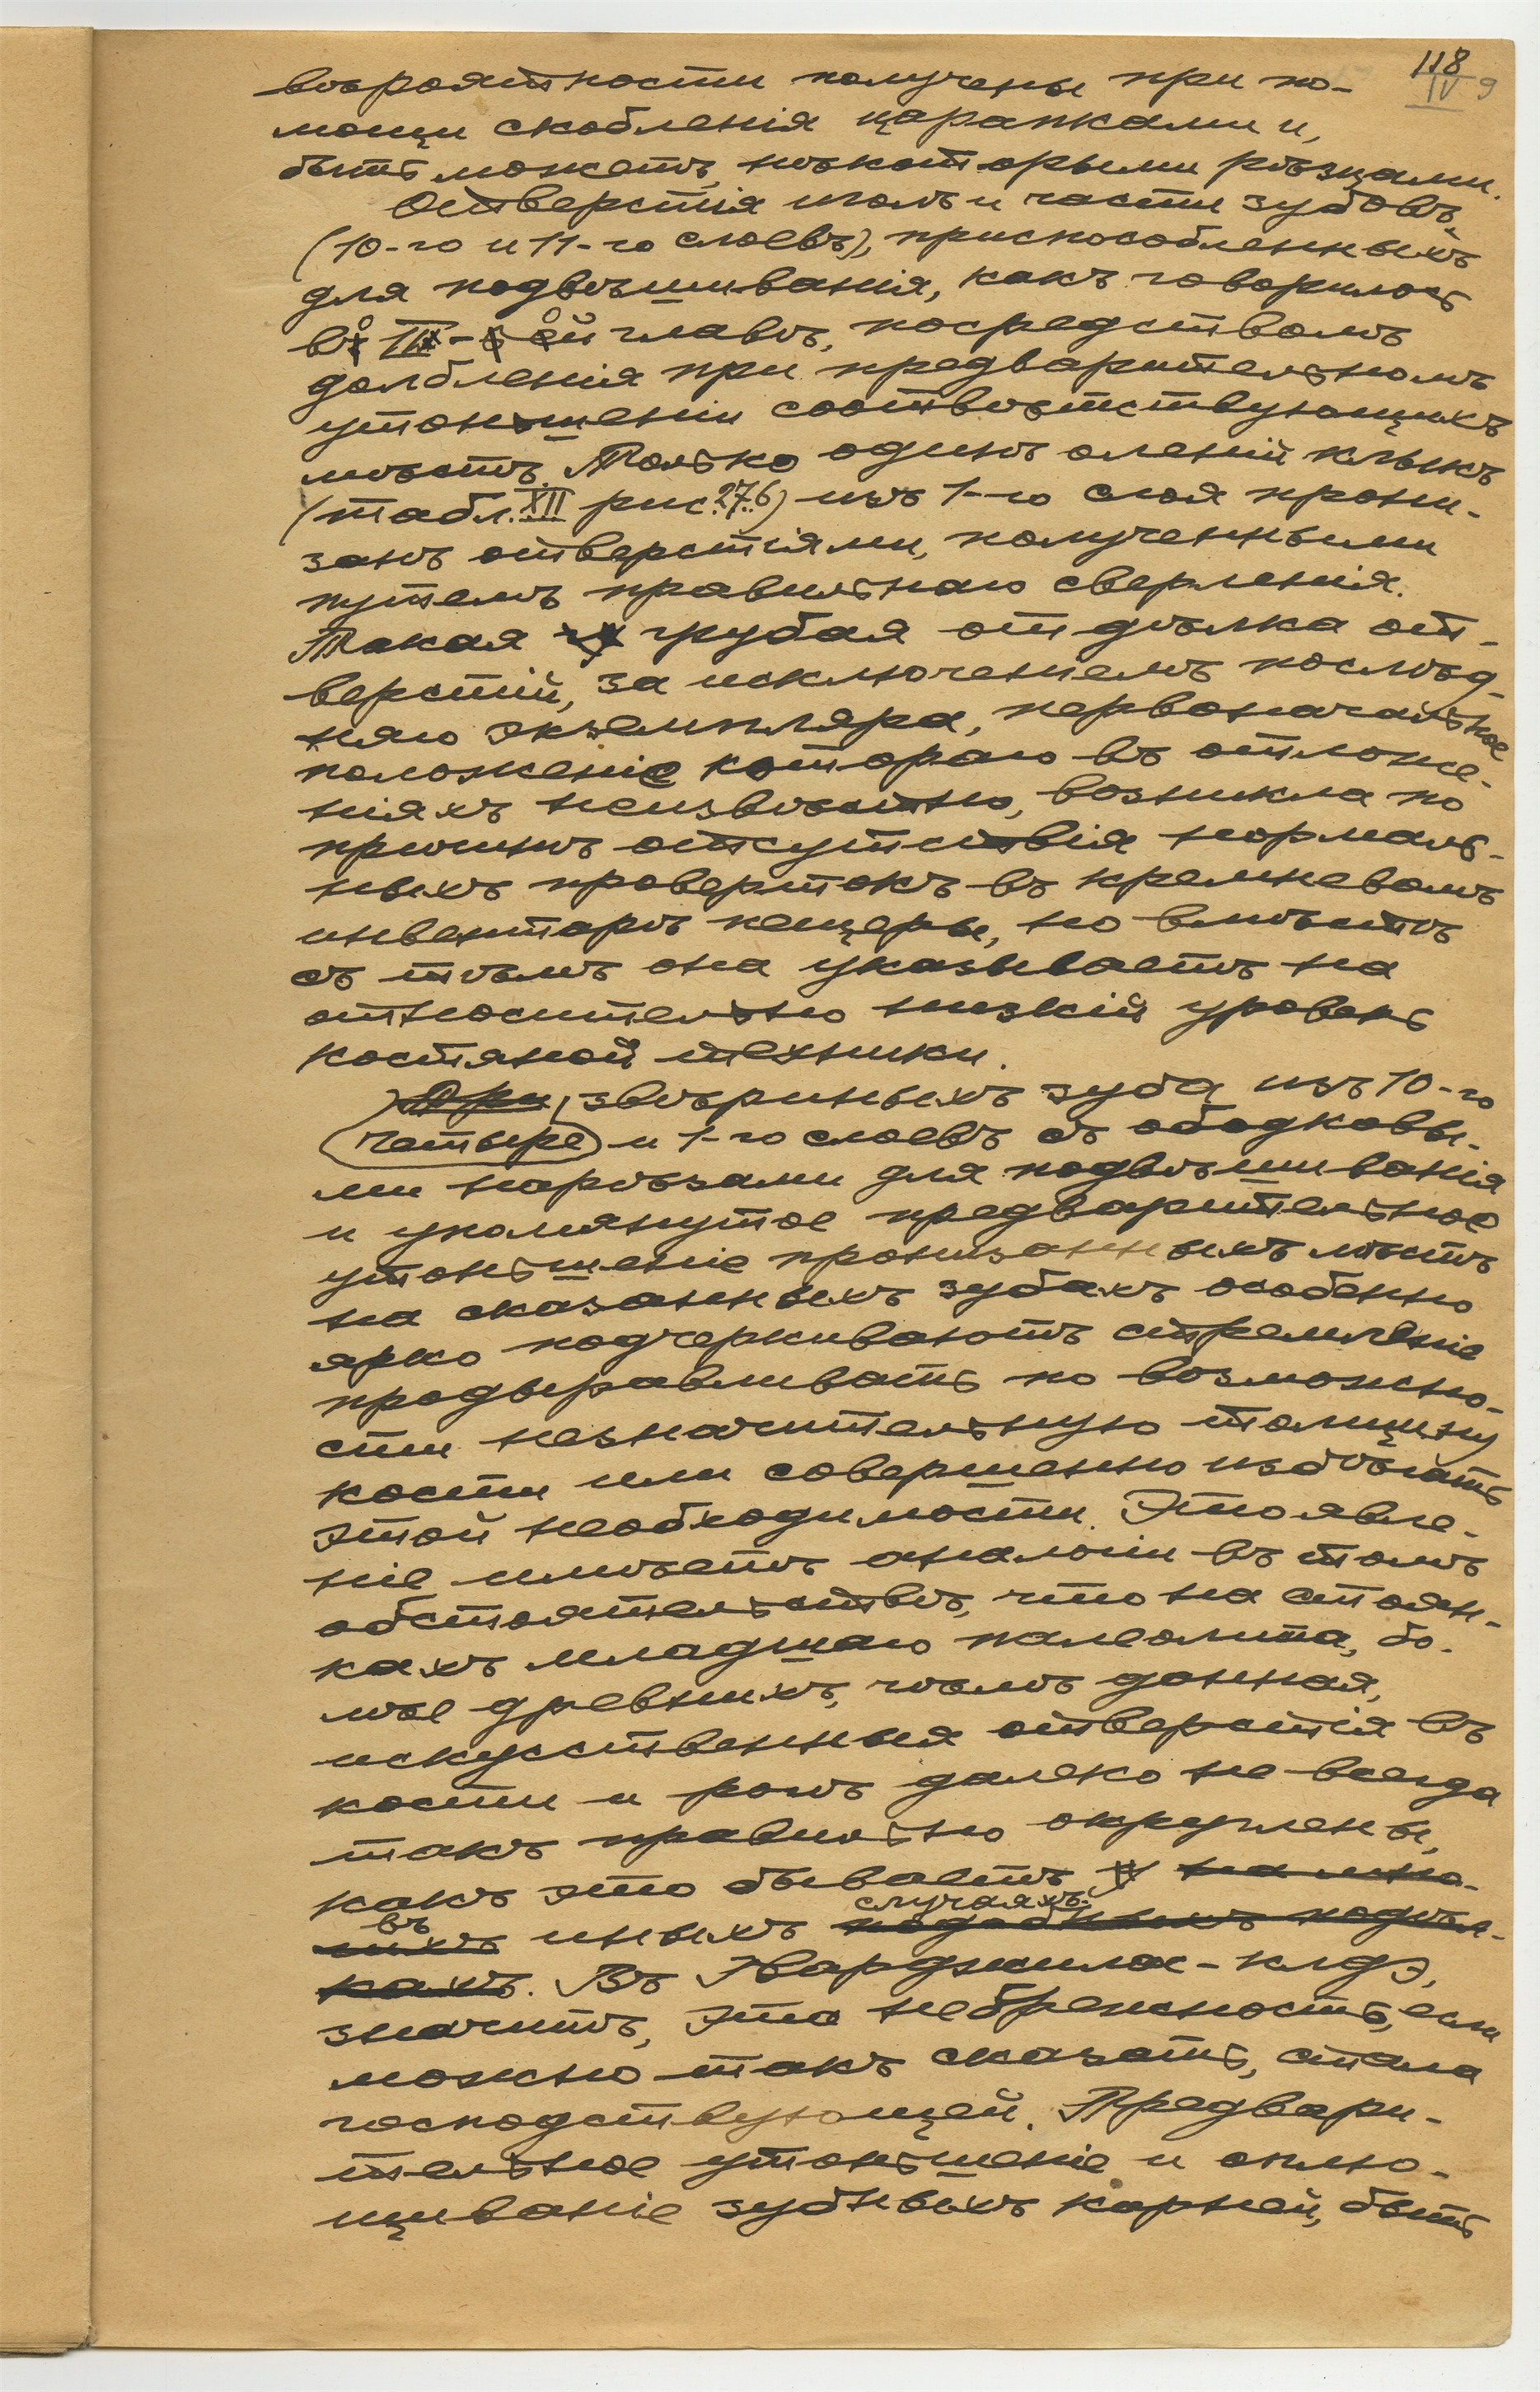 118
IV 9
вѣроятности получены при по-
мощи скобленія царапками и,
быть можетъ, нѣкоторыми рѣзцами.
Отверстія иголъ и части зубовъ,
(10-го и 11-го слоевъ), приспособленныхъ
для подвѣшиванія, какъ говорилось
во II-ой главѣ, посредствомъ
долбленія при предварительномъ
утоньшеніи соотвѣтствующихъ
мѣстъ. Только одинъ оленій клыкъ
(табл. XII рис. 27.6) изъ 1-го слоя прони-
занъ отверстіями, полученными
путемъ правильнаго сверленія.
Такая грубая отдѣлка от-
верстій, за исключеніемъ послѣд-
няго экземпляра, первоначальное
положеніе котораго въ отложе-
ніяхъ неизвѣстно, возникла по
причинѣ отсутствія нормаль-
ныхъ провертокъ въ кремневомъ
инвентарѣ пещеры, но вмѣстѣ
съ тѣмъ она указываетъ на
относительно низкій уровень
костяной техники.
Три звѣриныхъ зуба изъ 10-го
четыре и 1-го слоевъ съ ободковы-
ми нарѣзами для подвѣшиванія
и упомянутое предварительное
утоньшеніе пронизанныхъ мѣстъ
на сказанныхъ зубахъ особенно
ярко подчеркиваютъ стремленіе
продыравливать по возможно-
сти незначительную толщину
кости или совершенно избѣгать
этой необходимости. Это явле-
ніе имѣетъ аналогіи въ томъ
обстоятельствѣ, что на стоян-
кахъ младшаго палеолита, бо-
лѣе древнихъ, чѣмъ данная,
искусственныя отверстія въ
кости и рогѣ далеко не всегда
такъ правильно округлены,
какъ это бываетъ на мно-
въ случаяхъ.
гихъ иныхъ подобныхъ подѣл-
кахъ. Въ Гварджилас-клдэ,
значитъ, эта небрежность, если
можно такъ сказать, стала
господствующей. Предвари-
тельное утоньшеніе и сплю-
щиваніе зубныхъ корней, быть